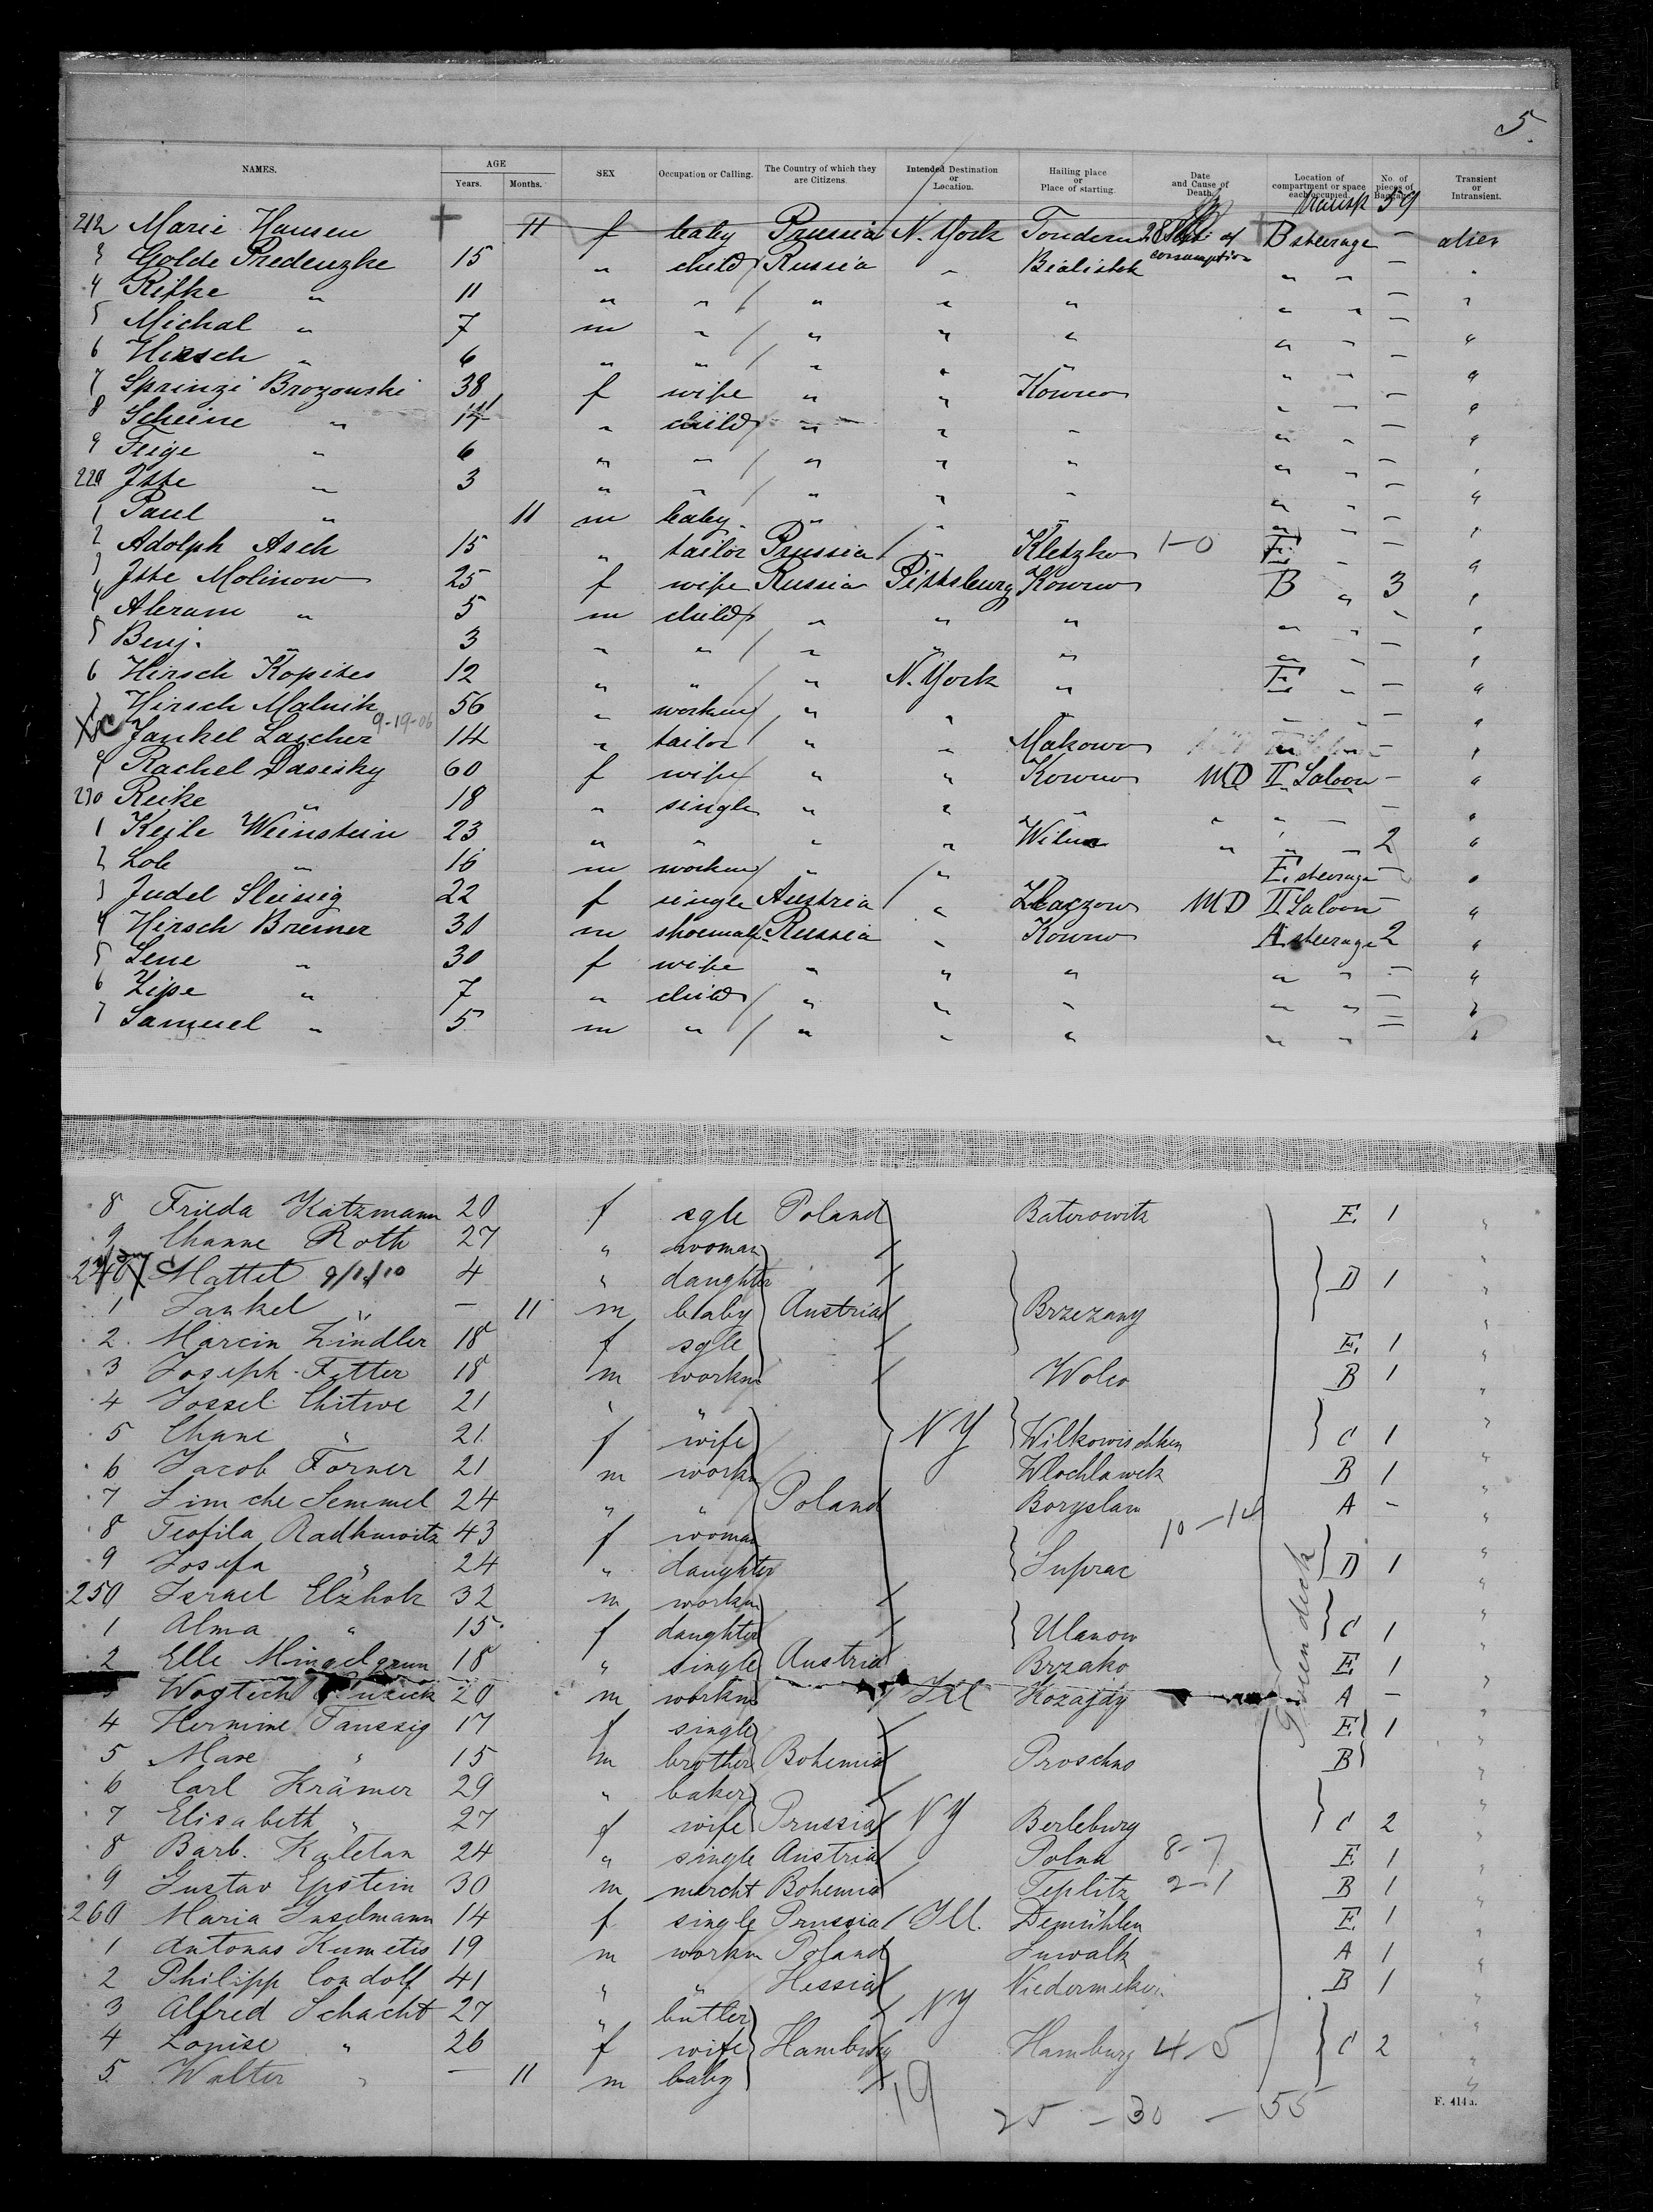 5.
NAMES. AGE Years. Months. SEX Occupation or Calling. The Country of which they are Citizens. Intended Destination or Location. Hailing place or Place of starting. Date and Cause of Death. Location of compartment or space each occupied. No. of pieces of Baggage. Transient or Intransient.
59
212 Marie Hansen + 11 f baby Prussia N. York Tondern 28 of consumption B steerage — alien
3 Golde Predenzke 15 " child Russia " Bialistok " " — "
4 Rifke " 11 " " " " " " " — "
5 Michal " 7 m " " " " " " — "
6 Hirsch " 6 " " " " " " " — "
7 Sprinzi Brozowski 38 f wife " " Kowno " " — "
8 Scheine " 11 " child " " " " " — "
9 Feige " 6 " " " " " " " — "
220 Itte " 3 " " " " " " " — "
1 Paul " 11 m baby " " " " " — "
2 Adolph Asch 15 " tailor Prussia " Kletzko 1-0 E " — "
3 Itte Molinow 25 f wife Russia Pittsburg Kowno B " 3 "
4 Abram " 5 m child " " " " " — "
5 Benj. " 3 " " " " " " " — "
6 Hirsch Kopites 12 " " " N. York " E " — "
7 Hirsch Malnik 56 " workm " " " " " — "
XC Jankel Lascher 9-19-06 14 " tailor " " Makowo — "
9 Rachel Dasisky 60 f wife " " Kowno MD II Saloon — "
230 Reike " 18 " single " " " " " " — "
1 Keile Weinstein 23 " " " " Wilna " " " 2 "
2 Lob " 16 m workm " " " E steerage — "
3 Judel Sleinig 22 f single Austria " Zloczow MD II Saloon — "
4 Hirsch Bremer 30 m shoemak. Russia " Kowno A steerage 2 "
5 Lene " 30 f wife " " " " " — "
6 Zipe " 7 " child " " " " " — "
7 Samuel " 5 m " " " " " " — "
8 Frieda Katzmann 20 f sgle Poland Baterowitz E. 1 "
9 Channe Roth 27 " woman "
240 XC Mattel 9/1/10 4 " daughter D 1 "
1 Jankel " — 11 m baby Austria Brzezany "
2 Marcin Lindler 18 f sgle E. 1 "
3 Joseph Fetter 18 m workm Woleo B 1 "
4 Jossel Chitwe 21 " " "
5 Chane " 21 f wife N Y Wilkowischken C 1 "
6 Jacob Forner 21 m workm Wlochlawek B 1 "
7 Simche Semmel 24 " " Poland Boryslaw A - "
8 Teofila Radkuwitz 43 f woman 10-14 "
9 Josefa " 24 " daughter Suprac D 1 "
250 Israel Elzholz 32 m workm "
1 Alma " 15 f daughter Ulanow C 1 "
2 Elle Mingelgrun 18 " single Austria Brzako E 1 "
3 Wogtech 20 m workm Ill Kozajdy A - "
4 Hermine Taussig 17 f single E 1 "
5 Maxe " 15 m brother Bohemia Proschno B "
6 Carl Krämer 29 " baker "
7 Elisabeth " 27 f wife Prussia N Y Berleburg C 2 "
8 Barb. Kaletan 24 " single Austria Polna 8-7 E 1 "
9 Gustav Epstein 30 m mercht Bohemia Teplitz 2-1 B 1 "
260 Maria Inselmann 14 f single Prussia Ill. Demühlen E 1 "
1 Antonas Kumetis 19 m workm Poland Suwalk A 1 "
2 Philipp Condolf 41 " " Hessia B 1 "
3 Alfred Schacht 27 " butler N Y "
4 Louise " 26 f wife Hamburg Hamburg 4-5 C 2 "
5 Walter " — 11 m baby "
19
25 — 30 — 55
F. 414 a.